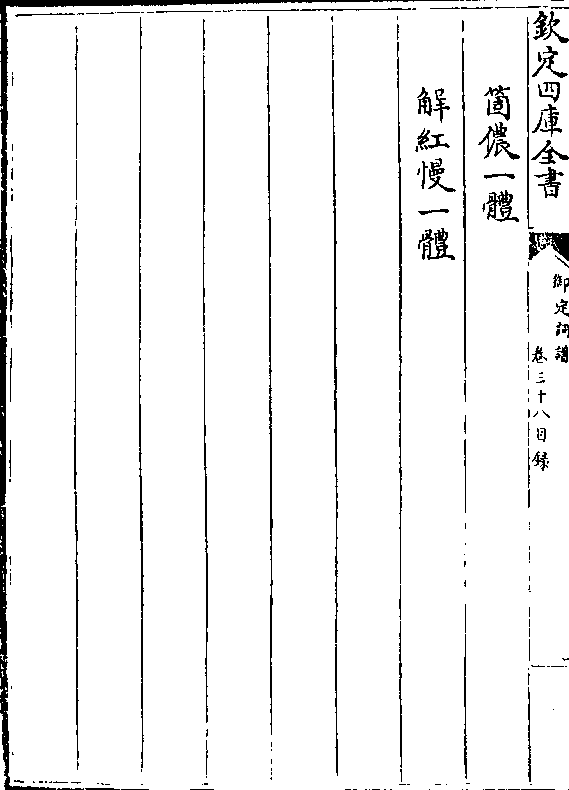 欽定四庫全書
御定詞譜
卷三十八目錄
箇儂一體
解紅慢一體